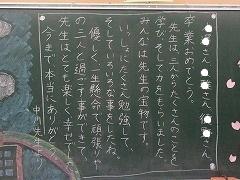 さん
さん
さん
卒業おめでとう。
先生は、三人からたくさんのことを
学び、そして力をもらいました。
みんなは先生の宝物です。
いっしょにたくさん勉強して、
そしていろいろな事をしたね。
優しく、一生懸命で頑張りや
の三人と過ごす事ができて、
先生はとても楽しく幸せでした。
今まで、本当にありがとう。
中川先生より